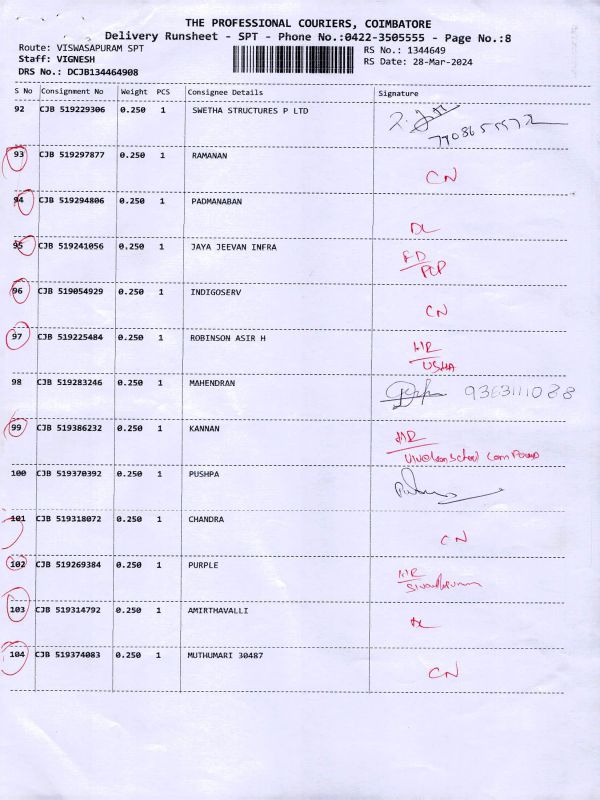 THE PROFESSIONAL COURIERS, COIMBATORE
Delivery Runsheet - SPT - Phone No.:0422-3505555 - Page No.:8
Route: VISWASAPURAM SPT
RS No.: 1344649
Staff: VIGNESH
RS Date: 28-Mar-2024
DRS No.: DCJB134464908
S No Consignment No Weight PCS Consignee Details Signature
92 CJB 519229306 0.250 1 SWETHA STRUCTURES P LTD
93 CJB 519297877 0.250 1 RAMANAN
CN
94 CJB 519294806 0.250 1 PADMANABAN
DL
95 CJB 519241056 0.250 1 JAYA JEEVAN INFRA
PCP
96 CJB 519054929 0.250 1 INDIGOSERV
CN
97 CJB 519225484 0.250 1 ROBINSON ASIR H
USHA
98 CJB 519283246 0.250 1 MAHENDRAN
9363111088
99 CJB 519386232 0.250 1 KANNAN
100 CJB 519370392 0.250 1 PUSHPA
101 CJB 519318072 0.250 1 CHANDRA
CN
102 CJB 519269384 0.250 1 PURPLE
103 CJB 519314792 0.250 1 AMIRTHAVALLI
DL
104 CJB 519374083 0.250 1 MUTHUMARI 30487
CN